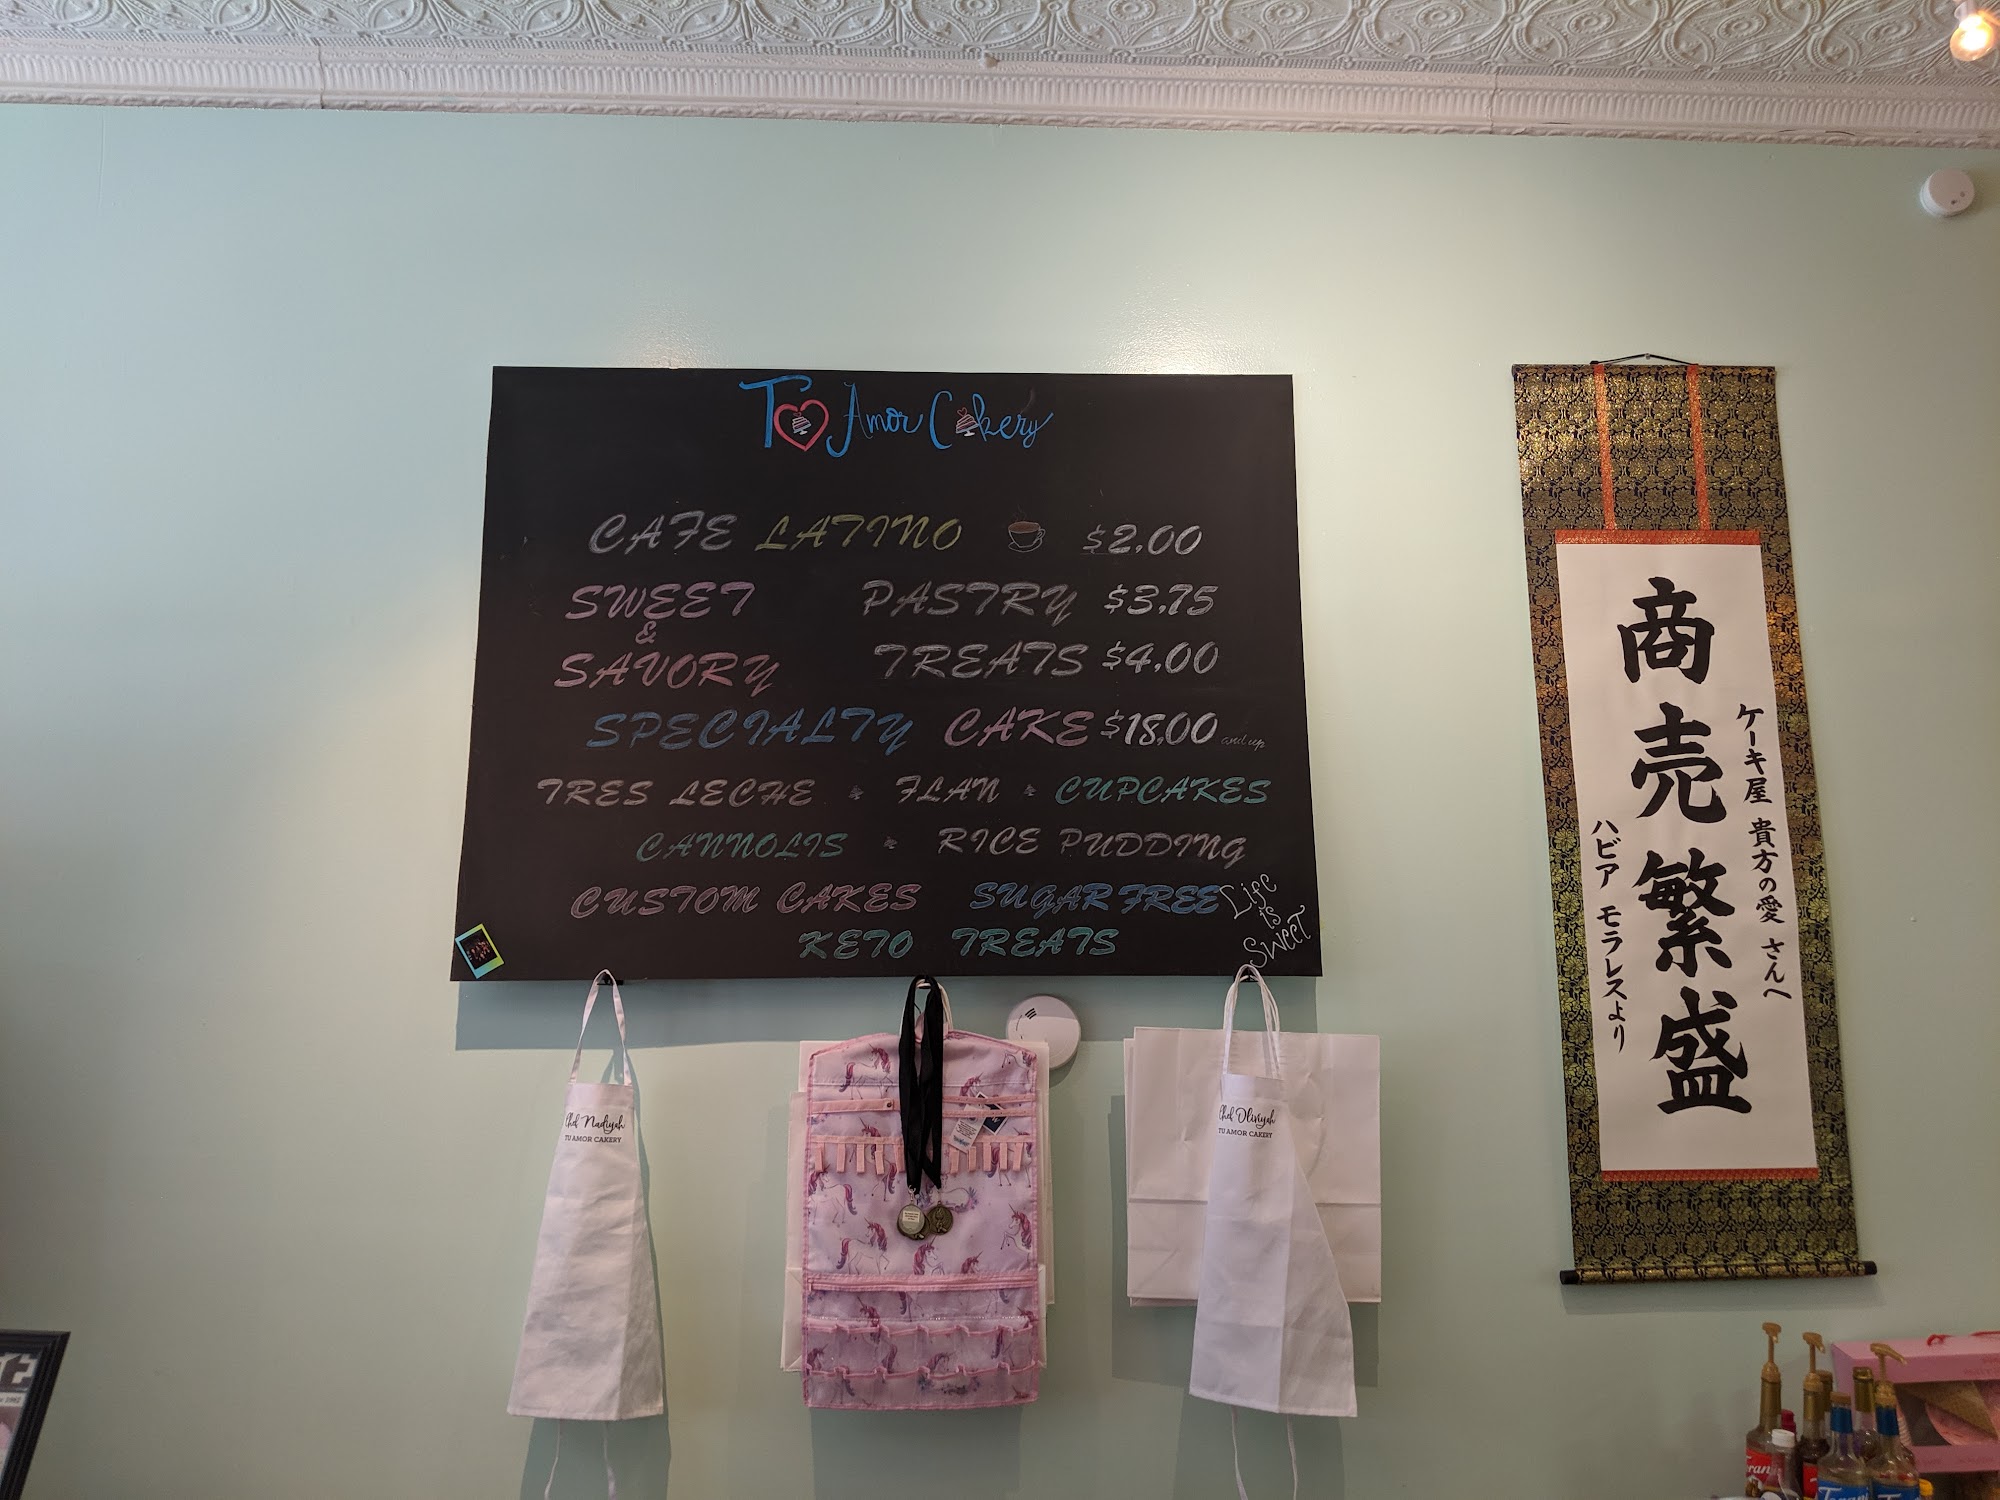 Tu Amor Cakery
CAFE LATINO $2.00
SWEET PASTRY $3.75
&
SAVORY TREATS $4.00
SPECIALTY CAKE $18.00 and up
TRES LECHE FLAN CUPCAKES
CANNOLIS RICE PUDDING
CUSTOM CAKES SUGAR FREE
KETO TREATS
Life
is
Sweet
Chef Nadiyah
TU AMOR CAKERY
Chef Oliviyah
TU AMOR CAKERY
ケーキ屋 貴方の愛 さんへ
商売繁盛
ハビア モラレスより